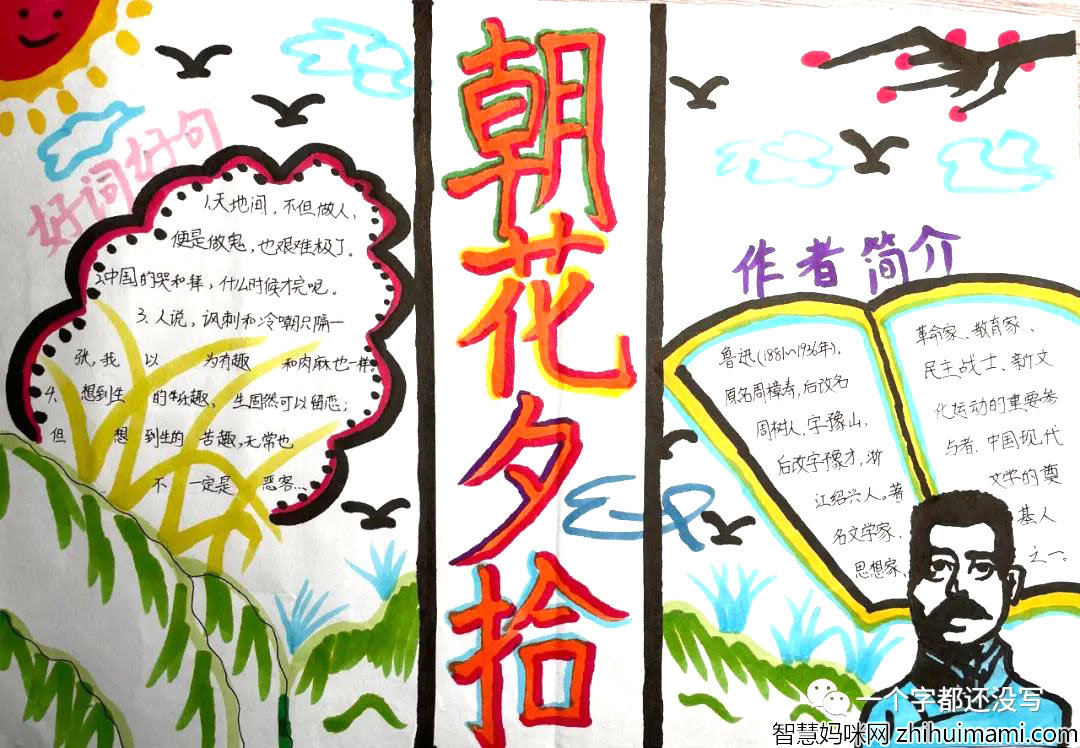 好词好句
1.天地间,不但做人,
便是做鬼,也艰难极了。
2.中国的哭和拜,什么时候才完呢。
3.人说,讽刺和冷嘲只隔一
张,我 以 为有趣 和肉麻也一样。
4. 想到生 的乐趣, 生固然可以留恋;
但 想 到生的 苦趣,无常也
不 一定是 恶客...
朝花夕拾
作者简介
鲁迅(1881~1936年),
原名周樟寿,后改名
周树人,字豫山,
后改字豫才,浙
江绍兴人。著
名文学家、
思想家、
革命家、教育家、
民主战士、新文
化运动的重要参
与者,中国现代
文学的奠
基人
之一。
一个字都还没写
智慧妈咪网 zhihuimami.com